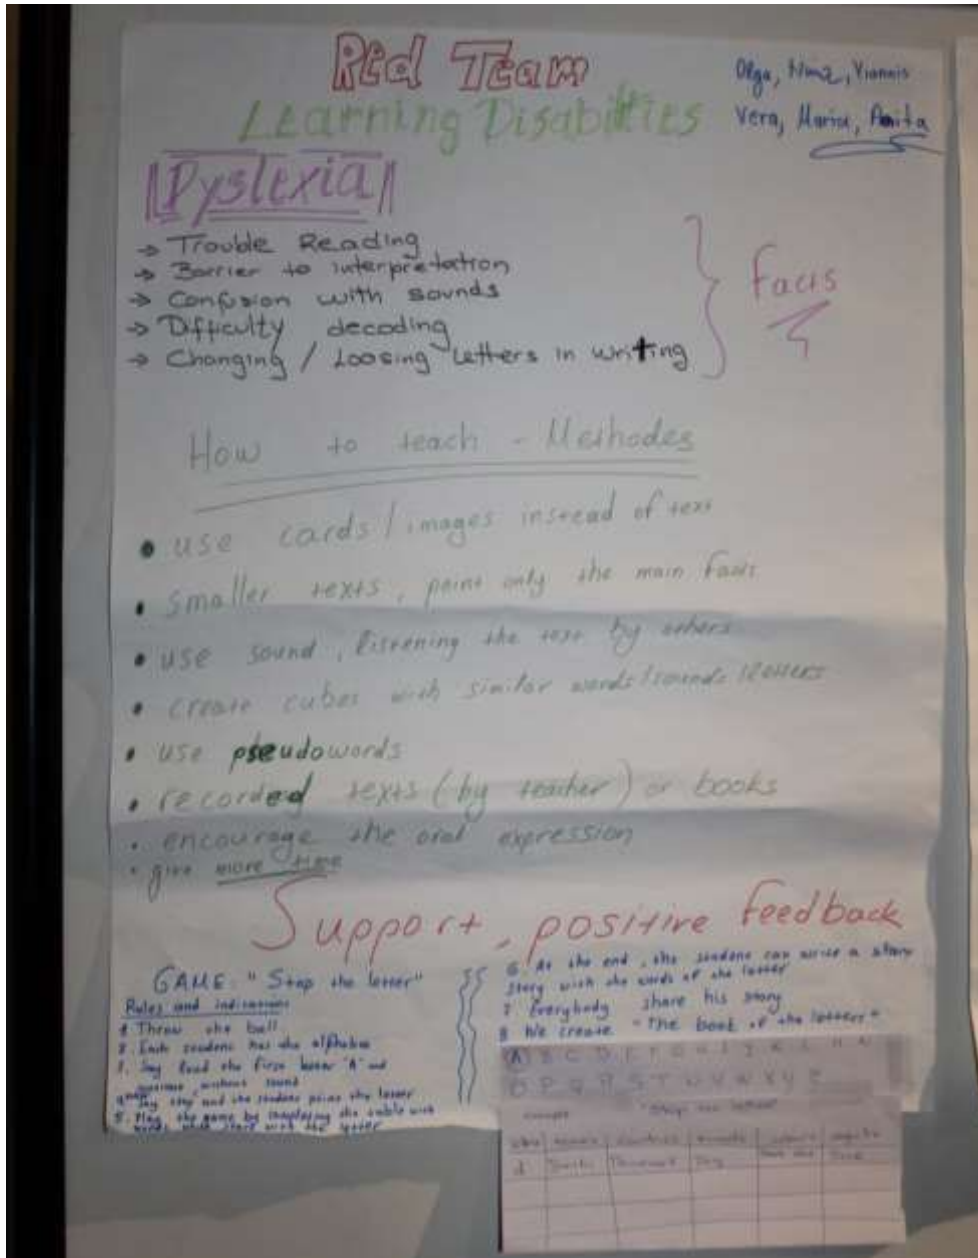 Red Team
Learning Disabilities
Olga, Yiannis
Vera, Maria, Anita
Dyslexia
→ Trouble Reading
→ Barrier to interpretation
→ Confusion with sounds
→ Difficulty decoding
→ Changing / Loosing Letters in writing
Facts
How to teach - Methodes
• use cards / images instead of text
• smaller texts, point only the main facts
• use sound, listening the text by others
• create cubes with similar words/sounds/letters
• use pseudowords
• recorded texts (by teacher) or books
• encourage the oral expression
• give more time
Support, positive feedback
GAME: "Stop the letter"
Rules and indications
1 Throw the ball
2. Each student has the alphabet
3. Say loud the first letter "A" and
without sound
4. Say stop and the student point the letter
5. Play the game by the table with
words start with the letter
6 At the end, the student can write a story
story with the words of the letter
7 Everybody share his story
8 We create "The book of the letters"
A B C D E F G H I J K L M N
O P Q R S T U V W X Y Z
"Stop the letter"
d